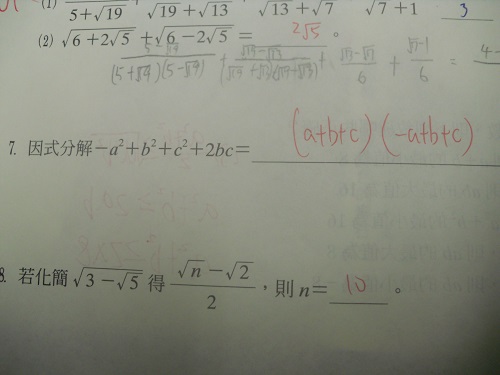 (1) 5+√19 √19+√13 √13+√7 √7+1 3
(2) √(6+2√5) + √(6-2√5) = 2√5 。
5-√19/(5+√19)(5-√19) + √19-√13/(√19+√13)(√19-√13) + √13-√7/6 + √7-1/6 =
7. 因式分解-a²+b²+c²+2bc= (a+b+c)(-a+b+c)
8. 若化簡 √(3-√5) 得 (√n-√2)/2 , 則 n= 10 。